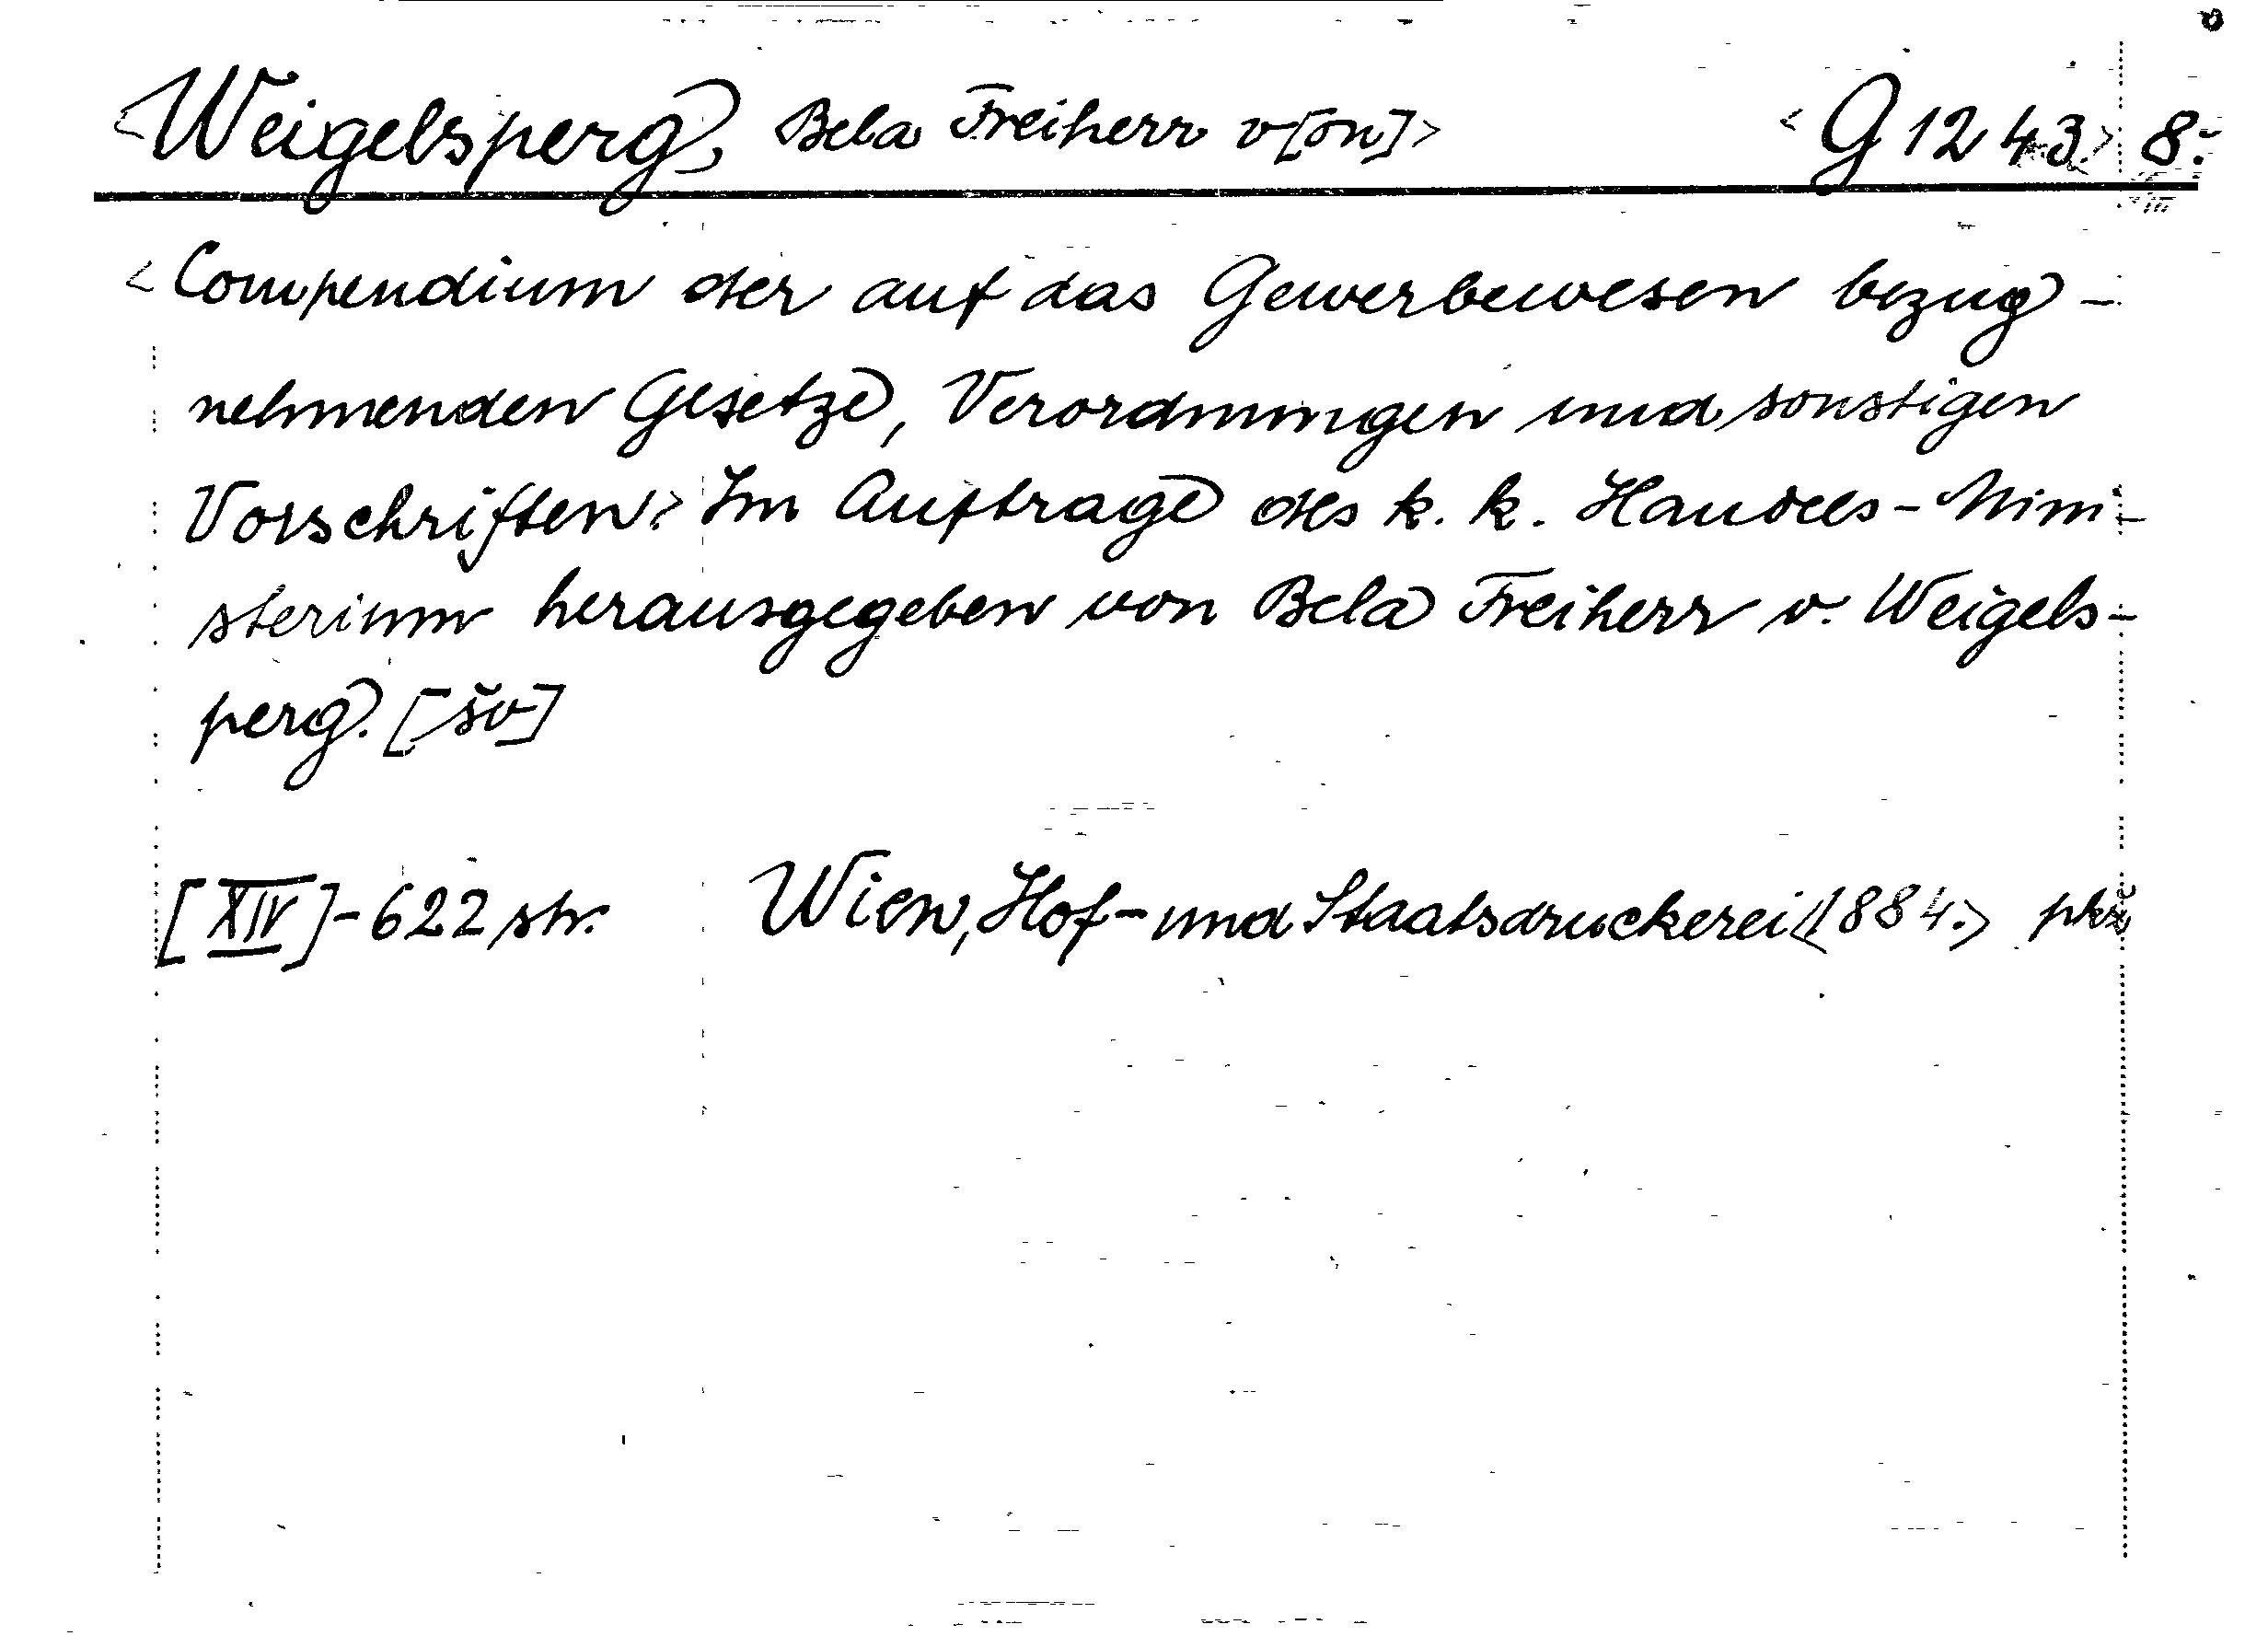 <Weigelsperg, Bela Freiherr v[on]> <G 1243.> 8.
<Compendium der auf das Gewerbewesen bezug-
nehmenden Gesetze, Verordnungen und sonstigen
Vorschriften.> Im Auftrage des k. k. Handels-Mini-
sterium herausgegeben von Bela Freiherr v. Weigels-
perg. [šv]
[XIV]-622 str. Wien, Hof- und Staatsdruckerei <1884.>